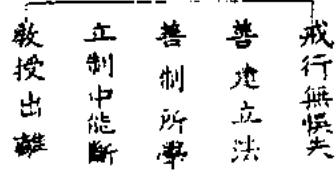 戒行無悞失
善建立法
善制所學
立制中能斷
教授出離